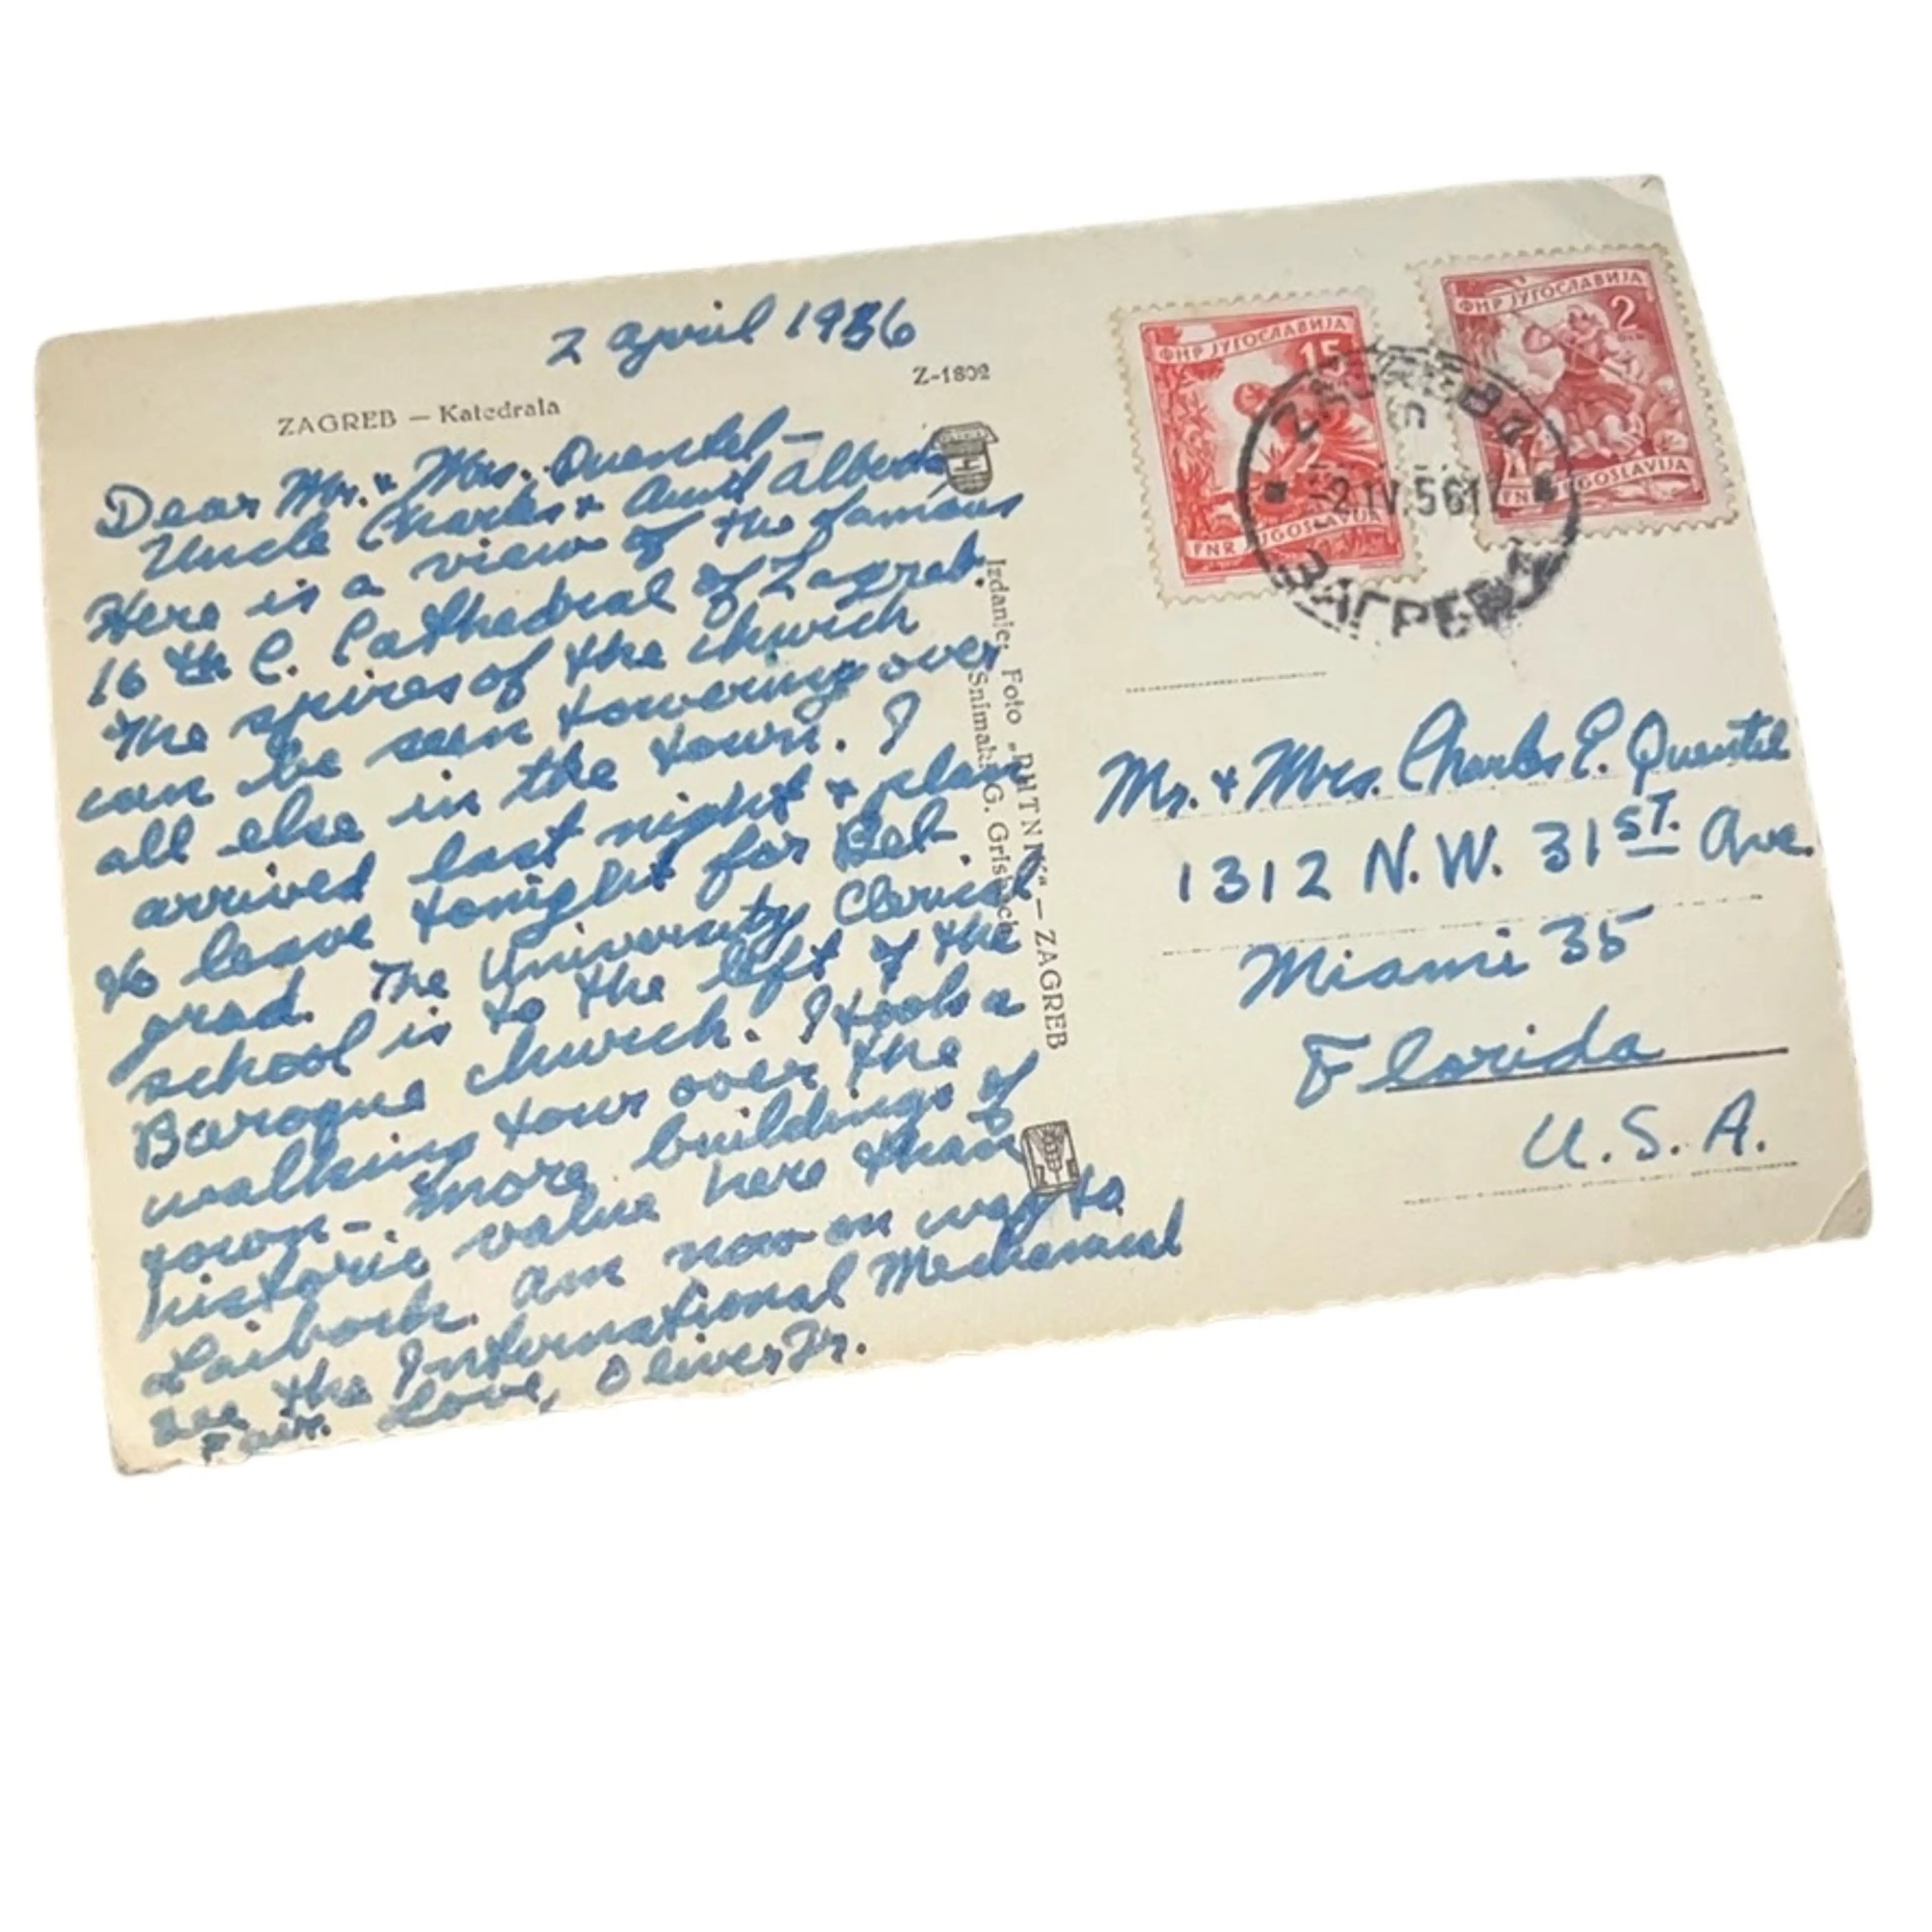 2 April 1956
Z-1802
ZAGREB — Katedrala
Dear Mr. & Mrs. Quentel —
Uncle Charles & Aunt Alberta
Here is a view of the famous
16 th C. Cathedral of Zagreb.
The spires of the church
can be seen towering over
all else in the town. I
arrived last night & plan
to leave tonight for Bel-
grad. The University Clerical
school is to the left of the
Baroque church. I took a
walking tour over the
town - more buildings of
historic value here than
Laibach. Am now on way to
see the International Mechanical
Fair. Love, Oliver Jr.
Izdanje: Foto „PUTNIK“ — ZAGREB
Snimak: G.
ФНР ЈУГОСЛАВИЈА
15
FNR JUGOSLAVIJA
ФНР ЈУГОСЛАВИЈА
2
FNR JUGOSLAVIJA
-2.IV.56
ЗАГРЕБ
Mr. & Mrs. Charles E. Quentel
1312 N.W. 31ST. Ave.
Miami 35
Florida
U.S.A.